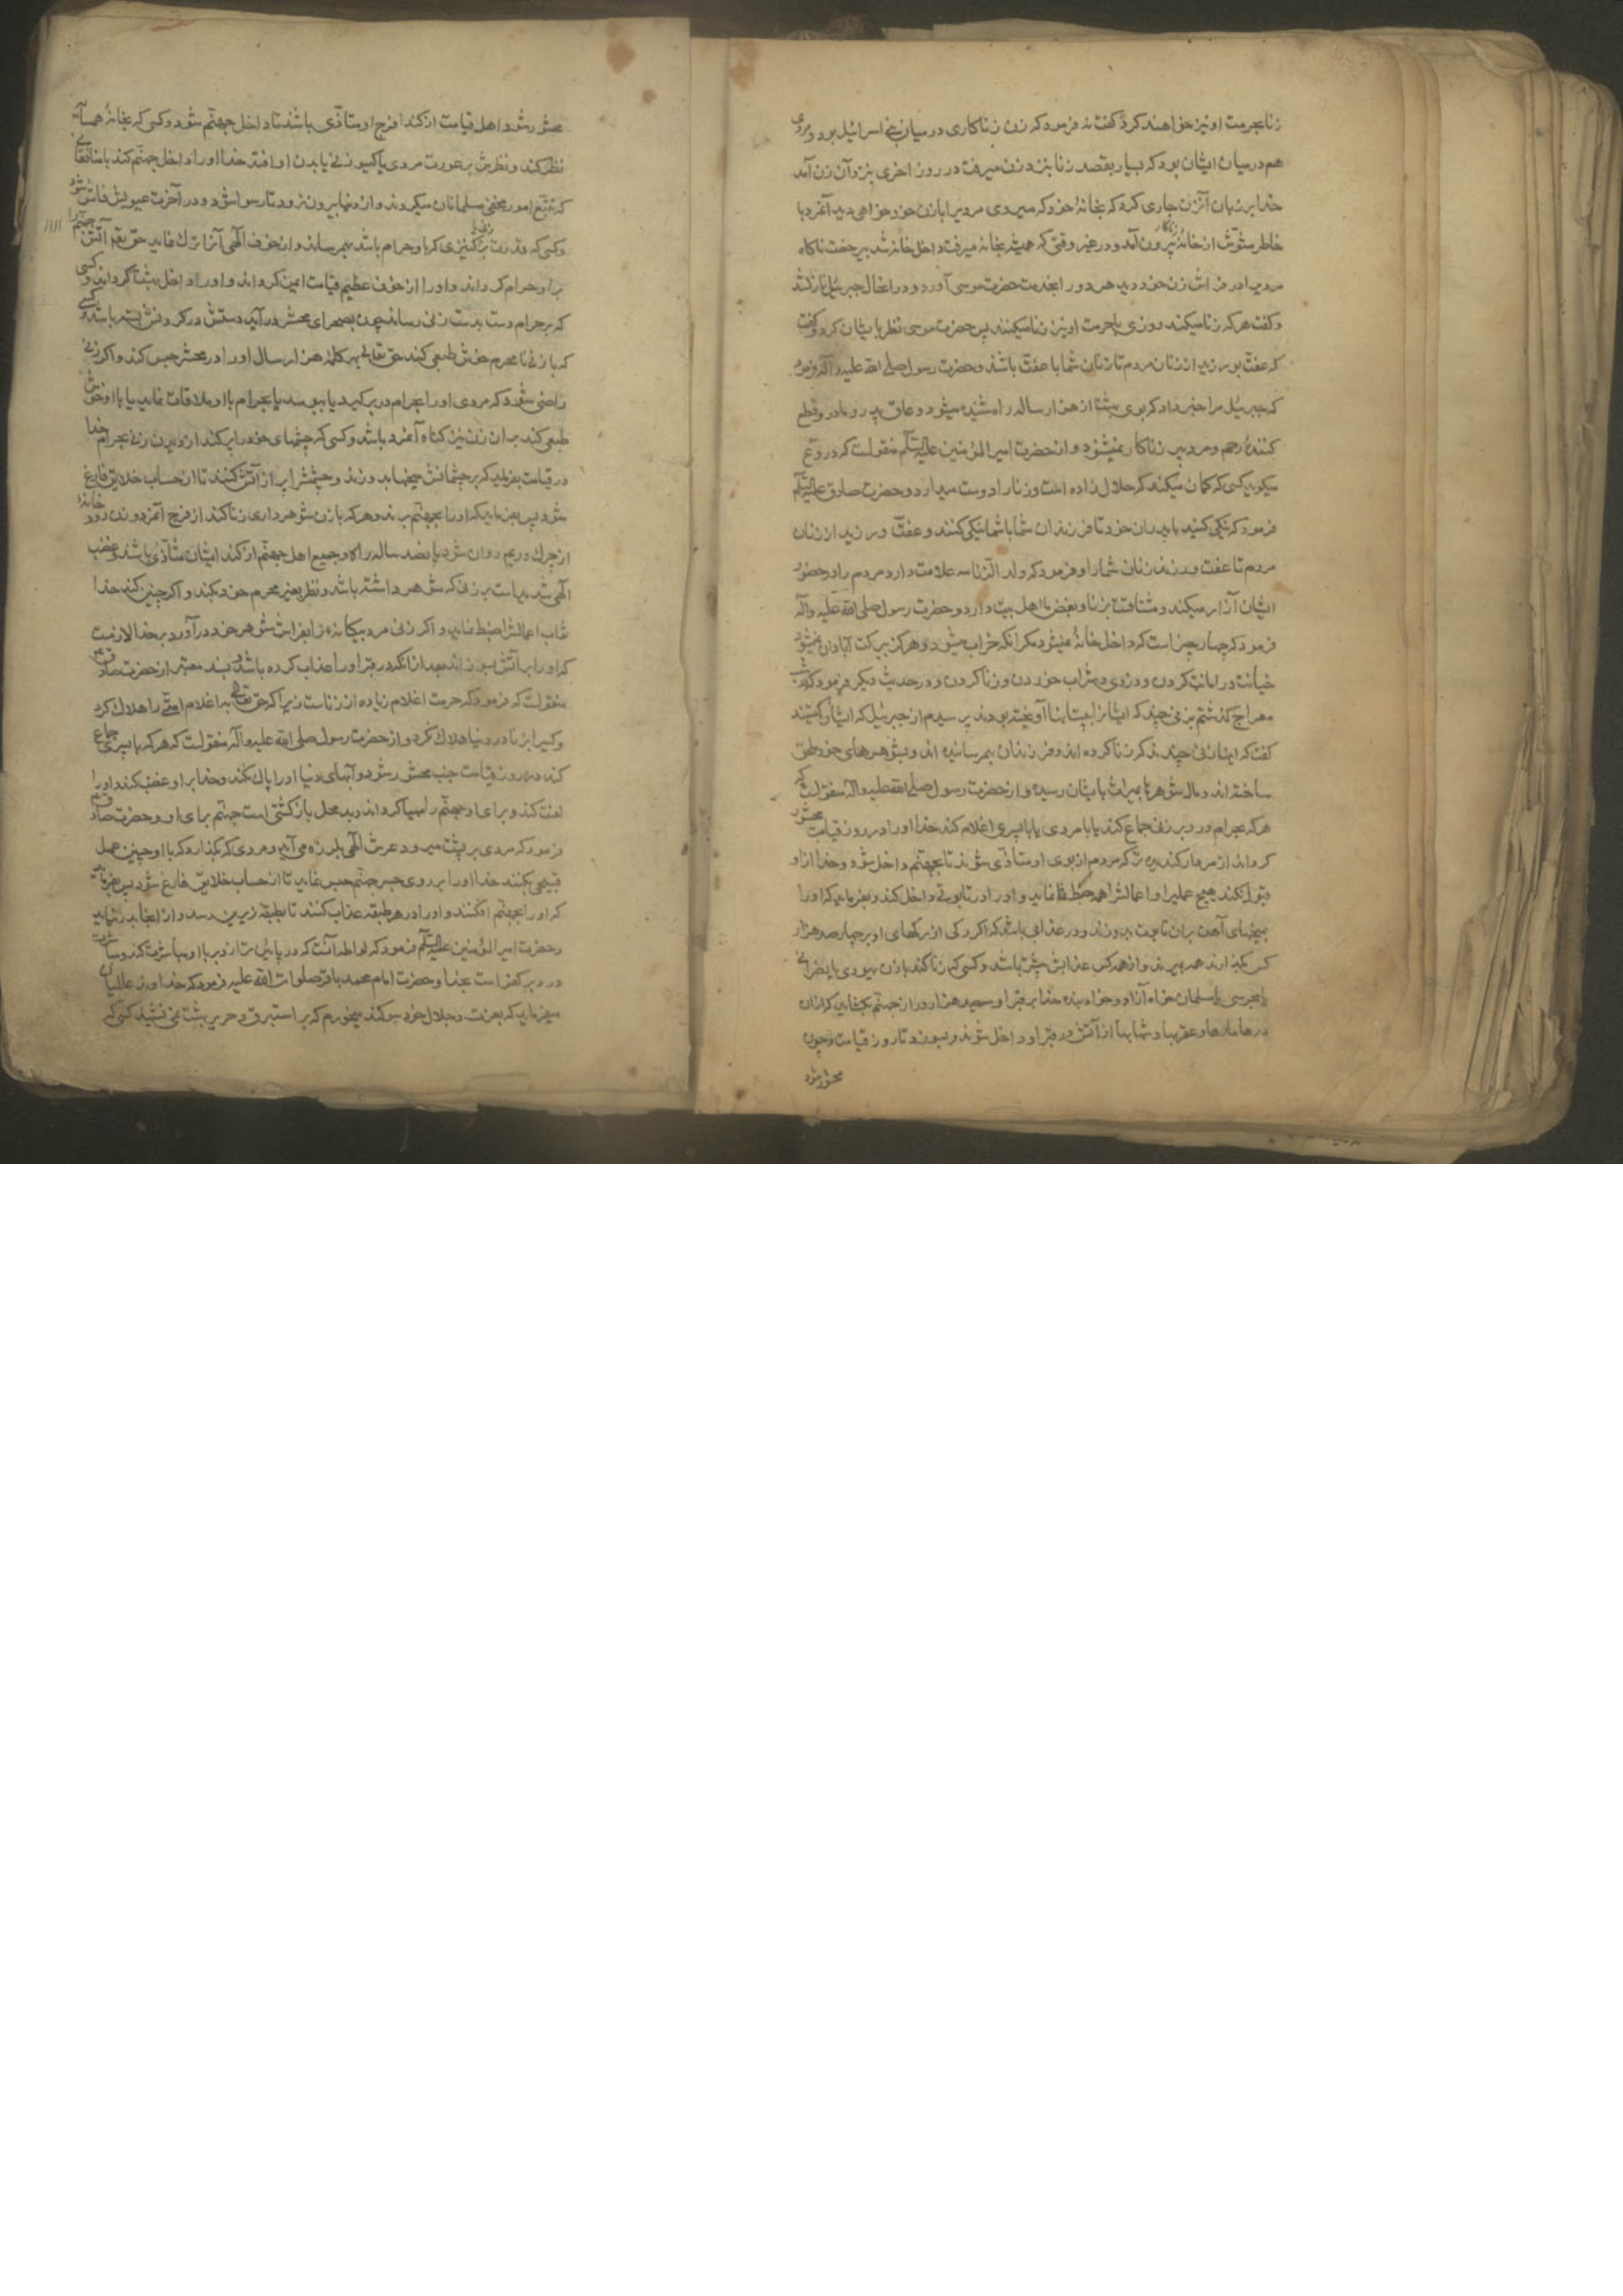 زنا بحرمت او نیز خواهند کرد و گفته فرمود که زن زناکاری در میان بنی اسرائیل بود و مردی
هم در میان ایشان بود که بسیار بقصد زنا بنزد زن میرفت در روز اخری بنزد آن زن آمد
خدا بر زبان آنزن جاری کرد که بخانهٔ خود که میروی مردیرا با زن خود خواهی دید آنمرد با
خاطر مشوش از خانهٔ زناکار بیرون آمد و در غیر وقتی که همیشه بخانه میرفت داخل خانه شد ناکاه
مردیرا در فراش زن خود دید هر دو را بخدمت حضرت موسی آورد و در انحال جبرئیل نازل شد
و گفت هر که زنا میکند روزی با حرمت او نیز زنا میکنند پس حضرت موسی نظر بایشان کرد و گفت
که عفت بورزید از زنان مردم تا زنان شما با عفت باشند و حضرت رسول صلی الله علیه و آله فرمود
که جبرئیل مرا خبر داد که بوی بهشت از هزار ساله راه شنیده میشود و عاق پدر و مادر و قطع
کنندهٔ رحم و مرد پیر زناکار نمیشنود و از حضرت امیر المؤمنین علیه السلام منقولست که دروغ
میکوید کسی که کمان میکند که حلال زاده است و زنا را دوست میدارد و حضرت صادق علیه السلام
فرمود که نیکی کنید با پدران خود تا فرزندان شما با شما نیکی کنند و عفت ورزید از زنان
مردم تا عفت ورزند زنان شما را و فرمود که ولد الزنا سه علامت دارد مردم را در حضور
ایشان آزار میکند و مشتاقست بزنا و بغض ما اهل بیت دارد و حضرت رسول صلی الله علیه و آله
فرمود که چهار چیز است که داخل خانهٔ نمیشود مکر آنکه خراب میشود و هرکز ببرکت آبادان نمیشود
خیانت در امانت کردن و دزدی و شراب خوردن و زنا کردن و در حدیث دیکر فرمود که در شب
معراج کذشتم بزنی چند که ایشانرا به پستانها آویخته بودند پرسیدم از جبرئیل که ایشان کیستند
گفت که اینها زنی چندند که زنا کرده اند و فرزندان بهم رسانیده اند و بشوهرهای خود ملحق
ساخته اند و مال شوهر بمیراث بایشان رسیده و از حضرت رسول صلی الله علیه و اله منقولست که
هر که بحرام در دبر زنی جماع کند یا با مردی یا با پسری اغلام کند خدا او را در روز قیامت محشور
کرداند از مردار کندیده تر که مردم از بوی او متاذی شوند تا بجهنم داخل شود و خدا از او
قبول نکند هیچ عملیرا و اعمالش را همه حبط نماید و او را در تابوتی داخل کند و بفرماید که او را
بمیخهای آهن بران تابوت بدوزند و در عذابی باشد که اکر رکی از رکهای او بر چهار صد هزار
کس بکذارند همه بمیرند و از همه کس عذابش بیشتر باشد و کسی که زنا کند با زن یهودی یا نصرانی
یا مجوسی یا مسلمان خواه آزاد و خواه بنده خدا بر قبر او سیصد هزار در از جهنم بکشاید که از آن
درها مارها و عقربها و شهابها از آتش در قبر او داخل شوند و بسوزد تا روز قیامت و چون
محشور شود
محشور شود اهل قیامت از کند فرج او متأذی باشند تا داخل جهنم شود و کسی که بخانهٔ همسایه
نظر کند و نظرش بر عورت مردی یا کیسو زنی یا بدن او افتد خدا او را داخل جهنم کند با منافقانی
که تتبع امور مخفی مسلمانان میکردند و از دنیا بیرون نرود تا رسوا شود و در آخرت عیوبش فاش شود
و کسی که قدرت بر زنی یا کنیزی که بر او حرام باشد بهم رساند و از خوف الهی آنرا ترک نماید حق تعالی آتش جهنم را
بر او حرام کرداند و او را از خوف عظیم قیامت ایمن کرداند و او را داخل بهشت کرداند و کسی
که بحرام دست بدست زنی رساند چون بصحرای محشر درآید دستش در کردنش بسته باشد و کسی
که با زنی نامحرم خوش طبعی کند حق تعالی بهر کلمهٔ هزار سال او را در محشر حبس کند و اکر زنی
راضی شود که مردی او را بحرام در بر کیرد یا ببوسد یا بحرام با او ملاقات نماید یا با او خوش
طبعی کند بر ان زن نیز کناه آنمرد باشد و کسی که چشمهای خود را پر کند از دیدن زنی بحرام خدا
در قیامت بفرماید که بر چشمانش میخها بدوزند و چشمش را پر از آتش کنند تا از حساب خلایق فارغ
شود پس بفرماید که او را بجهنم برند و هر که با زن شوهر داری زنا کند از فرج آنمرد و زن رودخانهٔ
از چرک و ریم روان شود پانصد ساله راه که جمیع اهل جهنم از کند ایشان متأذی باشند و غضب
الهی شدید است بر زنی که شوهر داشته باشد و نظر بغیر محرم خود بکند و اکر چنین کند خدا
ثواب اعمالش را ضبط نماید و اکر زنی مرد بیکانهٔ را بفراش شوهر خود درآورد بر خدا لازمست
که او را بآتش بسوزاند بعد از آنکه در قبر او را عذاب کرده باشد و بسند معتبر از حضرت صادق
منقولست که فرمود که حرمت اغلام زیاده از زناست زیرا که حق تعالی به اغلام امتی را هلاک کرد
و کسیرا بزنا در دنیا هلاک نکرد و از حضرت رسول صلی الله علیه و آله منقولست که هر که با پسری جماع
کند در روز قیامت جنب محشور شود و آبهای دنیا او را پاک نکند و خدا بر او غضب کند و او را
لعنت کند و برای او جهنم را مهیا کرداند و بد محل بازکشتی است جهنم برای او و حضرت صادق
فرمود که مردی بر پشت میرود عرش الهی بلرزه می آید و مردی که بکذارد که با او چنین عمل
قبیحی بکنند خدا او را بر روی جسر جهنم حبس نماید تا از حساب خلایق فارغ شود پس بفرماید
که او را بجهنم افکنند و او را در هر طبقه عذاب کنند تا بطبقه زیرین رسد و از آنجا بدر نیاید
و حضرت امیر المؤمنین علیه السلام فرمود که لواطه آنست که در پایین تر از دبر با او مباشرت کند و مباشرت
در دبر کفر است بخدا و حضرت امام محمد باقر صلوات الله علیه فرمود که خداوند عالمیان
میفرماید که بعزت و جلال خود سوکند میخورم که بر استبرق و حریر بهشت نمی نشیند کسی که